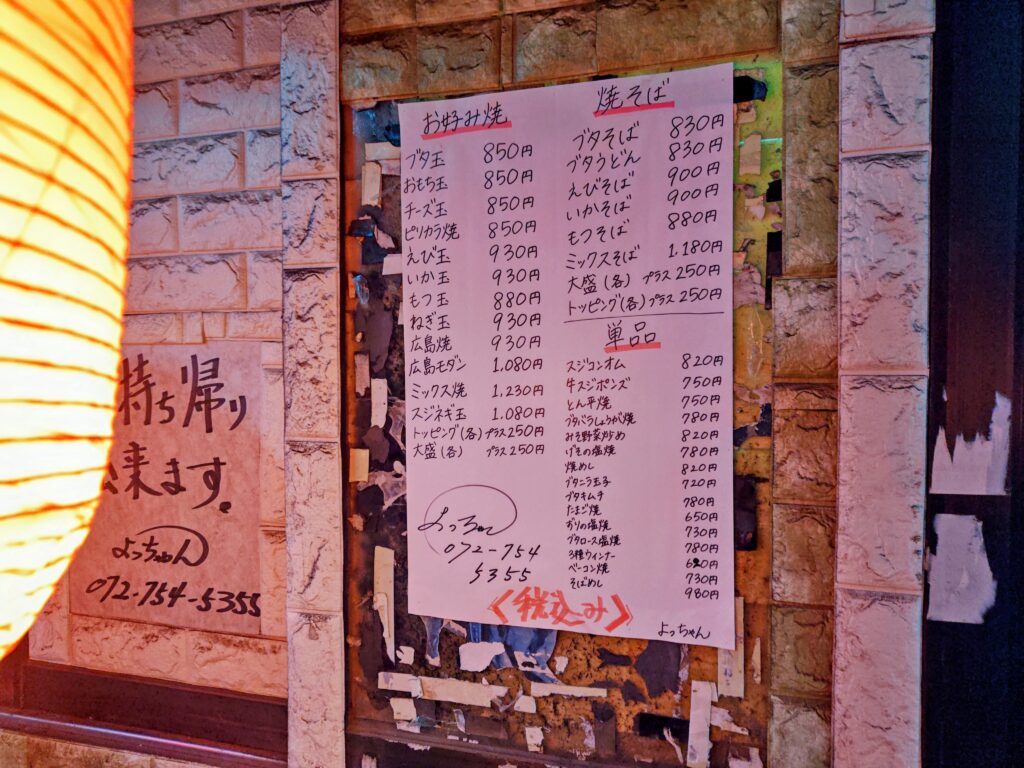 お好み焼
ブタ玉 850円
おもち玉 850円
チーズ玉 850円
ピリカラ焼 850円
えび玉 930円
いか玉 930円
もつ玉 880円
ねぎ玉 930円
広島焼 930円
広島モダン 1.080円
ミックス焼 1.230円
スジネギ玉 1.080円
トッピング(各)プラス250円
大盛(各) プラス250円
よっちゃん
072-754
5355
焼そば
ブタそば 830円
ブタうどん 830円
えびそば 900円
いかそば 900円
もつそば 880円
ミックスそば 1.180円
大盛(各) プラス250円
トッピング(各)プラス250円
単品
スジコンオム 820円
牛スジポンズ 750円
とん平焼 750円
ブタバラしょうが焼 780円
みそ野菜炒め 820円
げその塩焼 780円
焼めし 820円
ブタニラ玉子 720円
ブタキムチ 780円
たまご焼 650円
ずりの塩焼 730円
ブタロース塩焼 780円
3種ウィンナー
ベーコン焼 730円
そばめし 980円
《税込み》
よっちゃん
持ち帰り
来ます。
よっちゃん
072-754-5355